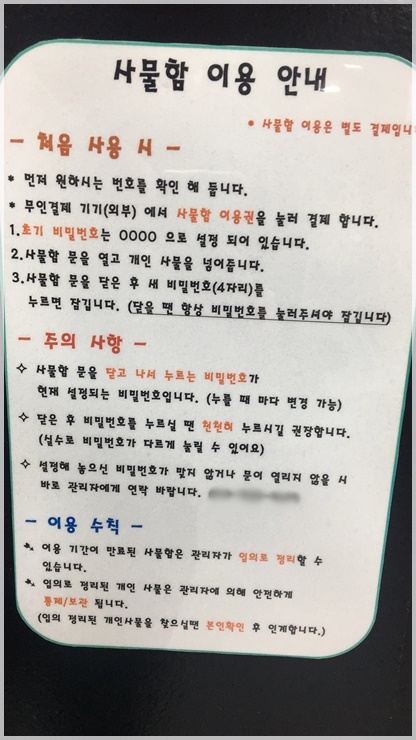 사물함 이용 안내
* 사물함 이용은 별도 결제입니
- 처음 사용 시 -
* 먼저 원하시는 번호를 확인 해 둡니다.
* 무인결제 기기(외부) 에서 사물함 이용권을 눌러 결제 합니다.
1.초기 비밀번호는 0000 으로 설정 되어 있습니다.
2.사물함 문을 열고 개인 사물을 넣어줍니다.
3.사물함 문을 닫은 후 새 비밀번호(4자리)를
누르면 잠깁니다. (닫을 땐 항상 비밀번호를 눌러주셔야 잠깁니다)
- 주의 사항 -
✧ 사물함 문을 닫고 나서 누르는 비밀번호가
현재 설정되는 비밀번호입니다. (누를 때 마다 변경 가능)
✧ 닫은 후 비밀번호를 누르실 땐 천천히 누르시길 권장합니다.
(실수로 비밀번호가 다르게 눌릴 수 있어요)
✧ 설정해 놓으신 비밀번호가 맞지 않거나 문이 열리지 않을 시
바로 관리자에게 연락 바랍니다.
- 이용 수칙 -
이용 기간이 만료된 사물함은 관리자가 임의로 정리할 수
있습니다.
임의로 정리된 개인 사물은 관리자에 의해 안전하게
통제/보관 됩니다.
(임의 정리된 개인사물을 찾으실땐 본인확인 후 인계합니다.)